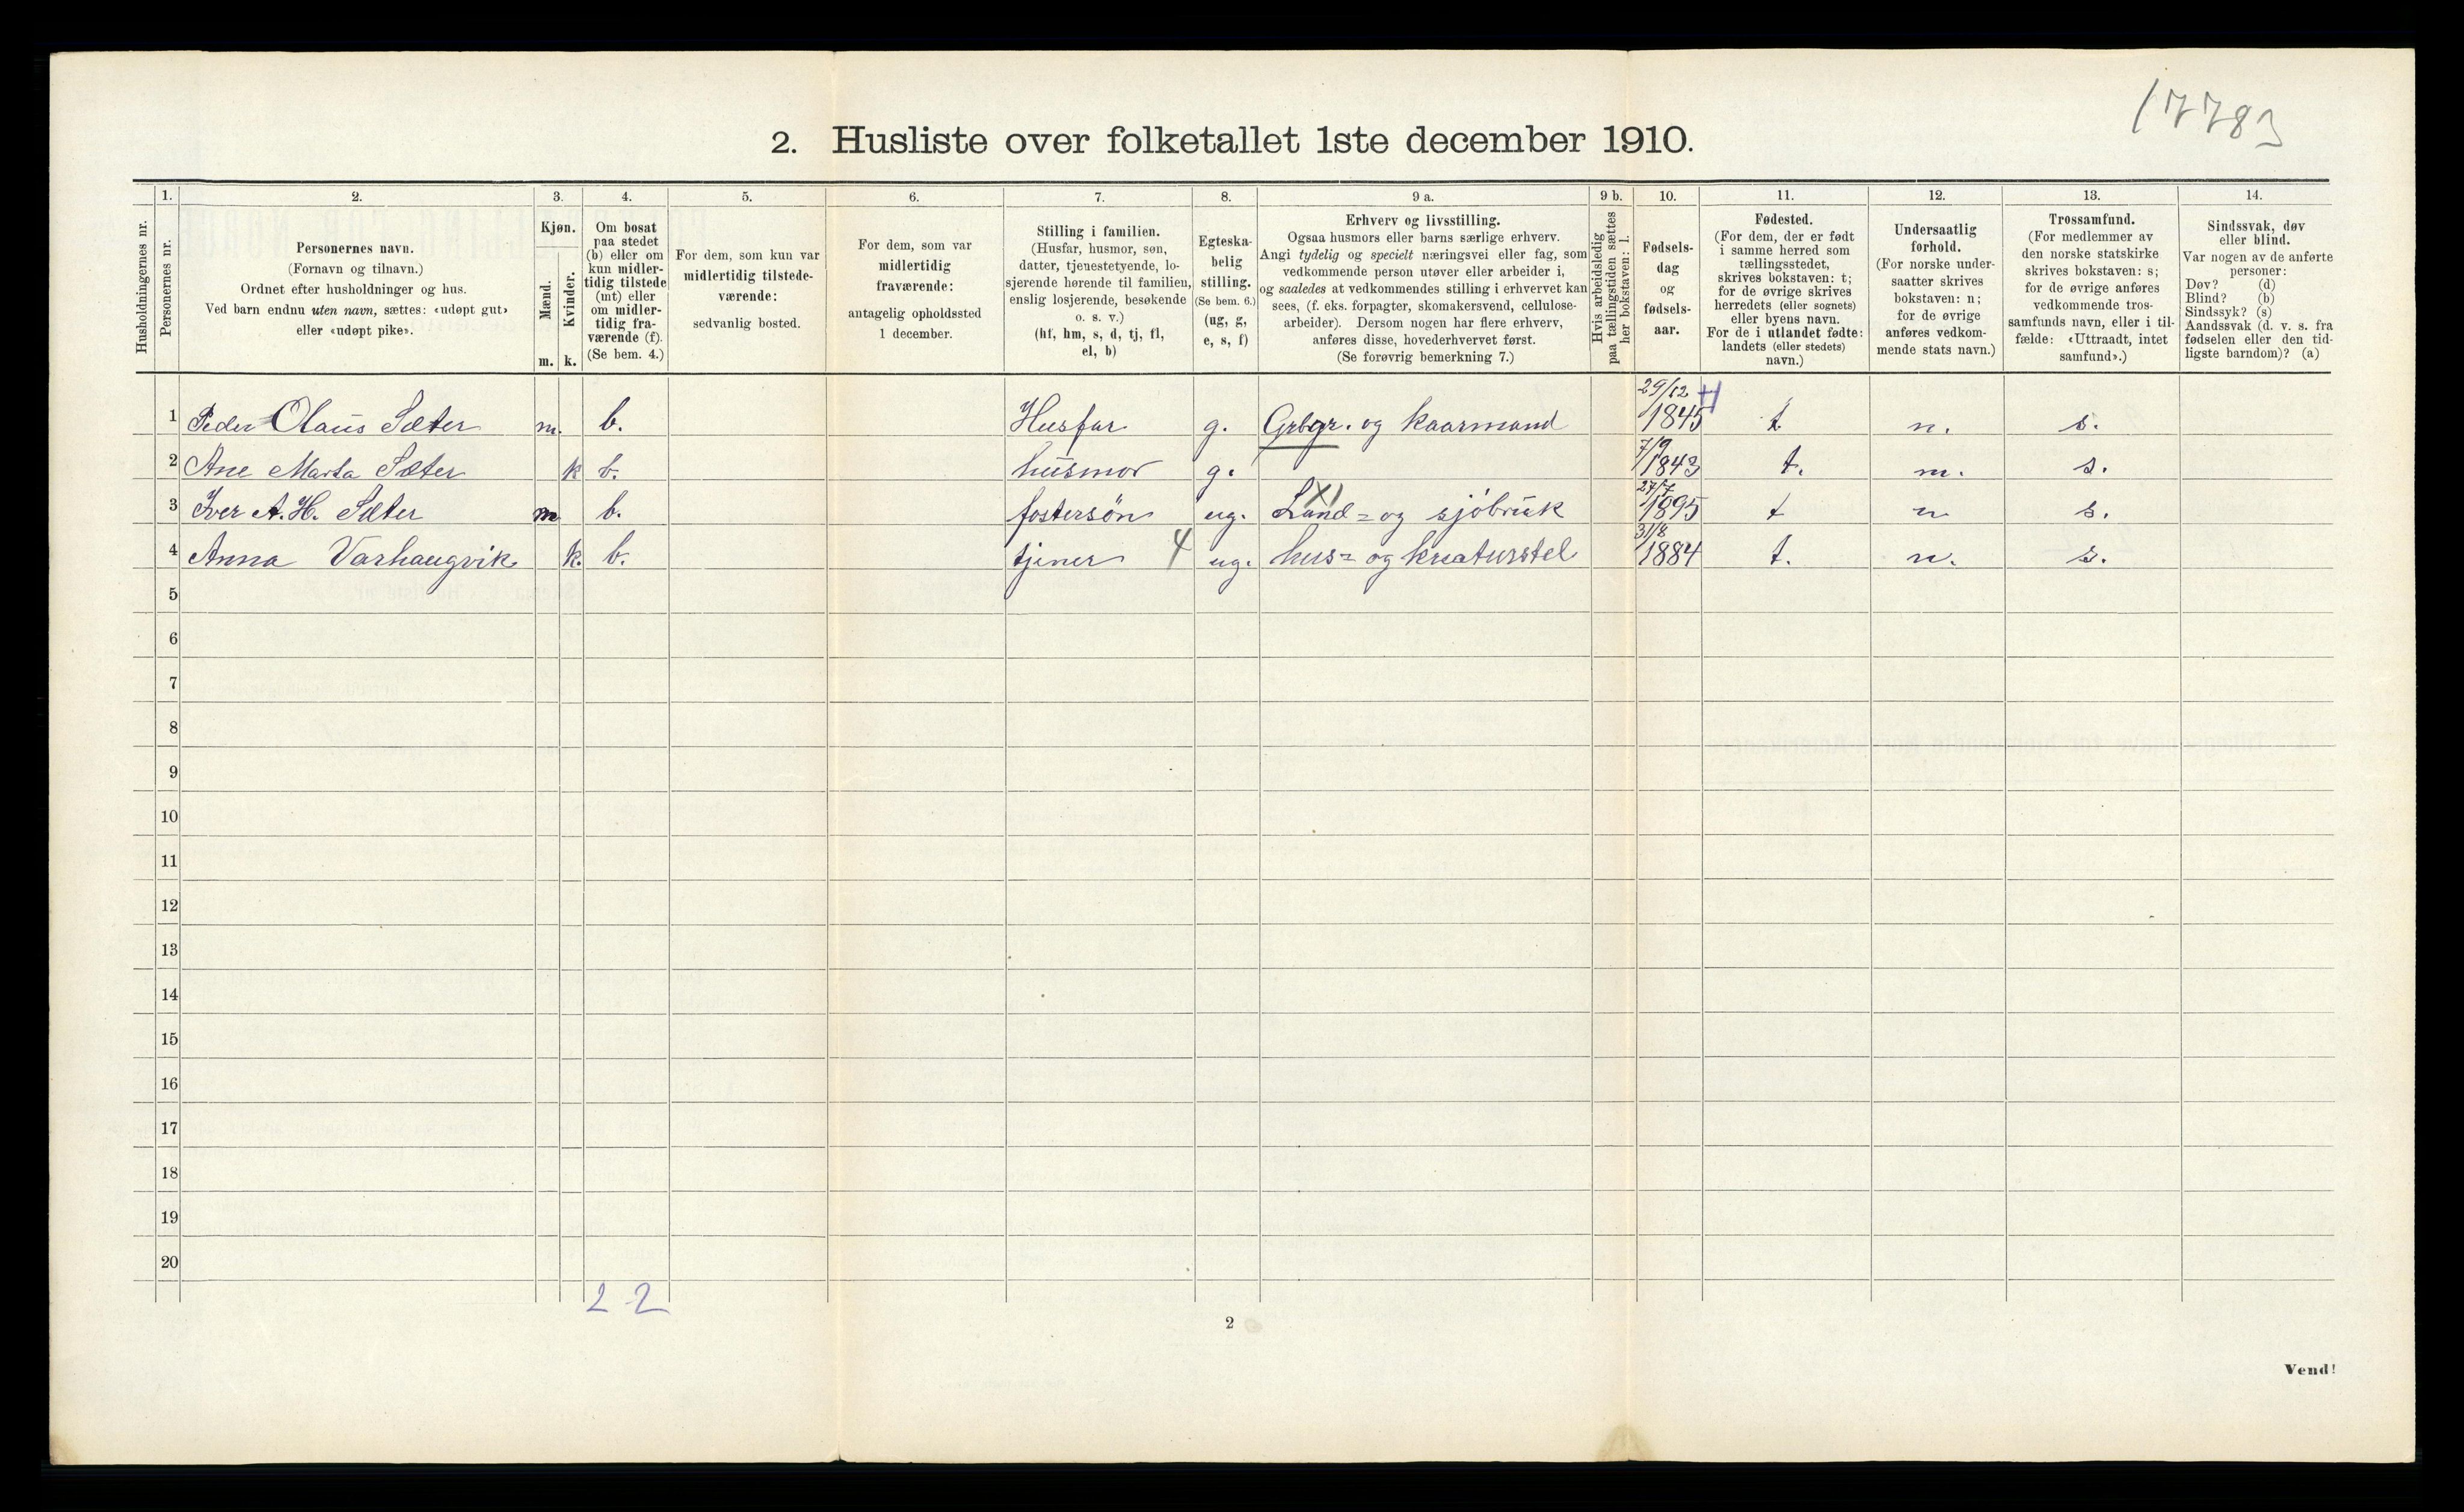 17783
2. Husliste over folketallet 1ste december 1910.
Husholdningernes nr.
1.
Personernes nr.
2.
Personernes navn.
(Fornavn og tilnavn.)
Ordnet efter husholdninger og hus.
Ved barn endnu uten navn, sættes: «udøpt gut»
eller «udøpt pike».
3.
Kjøn.
Mænd.
Kvinder.
m. k.
4.
Om bosat
paa stedet
(b) eller om
kun midler-
tidig tilstede
(mt) eller
om midler-
tidig fra-
værende (f).
(Se bem. 4.)
5.
For dem, som kun var
midlertidig tilstede-
værende:
sedvanlig bosted.
6.
For dem, som var
midlertidig
fraværende:
antagelig opholdssted
1 december.
7.
Stilling i familien.
(Husfar, husmor, søn,
datter, tjenestetyende, lo-
sjerende hørende til familien,
enslig losjerende, besøkende
o. s. v.)
(hf, hm, s, d, tj, fl,
el, b)
8.
Egteska-
belig
stilling.
(Se bem. 6.)
(ug, g,
e, s, f)
9 a.
Erhverv og livsstilling.
Ogsaa husmors eller barns særlige erhverv.
Angi tydelig og specielt næringsvei eller fag, som
vedkommende person utøver eller arbeider i,
og saaledes at vedkommendes stilling i erhvervet kan
sees, (f. eks. forpagter, skomakersvend, cellulose-
arbeider). Dersom nogen har flere erhverv,
anføres disse, hovederhvervet først.
(Se forøvrig bemerkning 7.)
9 b.
Hvis arbeidsledig
paa tællingstiden sættes
her bokstaven: l.
10.
Fødsels-
dag
og
fødsels-
aar.
11.
Fødested.
(For dem, der er født
i samme herred som
tællingsstedet,
skrives bokstaven: t;
for de øvrige skrives
herredets (eller sognets)
eller byens navn.
For de i utlandet fødte:
landets (eller stedets)
navn.)
12.
Undersaatlig
forhold.
(For norske under-
saatter skrives
bokstaven: n;
for de øvrige
anføres vedkom-
mende stats navn.)
13.
Trossamfund.
(For medlemmer av
den norske statskirke
skrives bokstaven: s;
for de øvrige anføres
vedkommende tros-
samfunds navn, eller i til-
fælde: «Uttraadt, intet
samfund».)
14.
Sindssvak, døv
eller blind.
Var nogen av de anførte
personer:
Døv? (d)
Blind? (b)
Sindssyk? (s)
Aandssvak (d. v. s. fra
fødselen eller den tid-
ligste barndom)? (a)
1 Peder Olaus Sæter m. b. Husfar g. Grbgr. og kaarmand 29/12 1845 t n. s.
2 Ane Marta Sæter k b. husmor g. 7/9 1843 t. n. s.
3 Iver A. H. Sæter m b. fostersøn ug. Land= og sjöbruk 27/7 1895 t n s.
4 Anna Varhaugvik k. b. tjener 4 ug. hus= og kreaturstel 31/8 1884 t. n. s.
5
6
7
8
9
10
11
12
13
14
15
16
17
18
19
20
2 2
2
Vend!